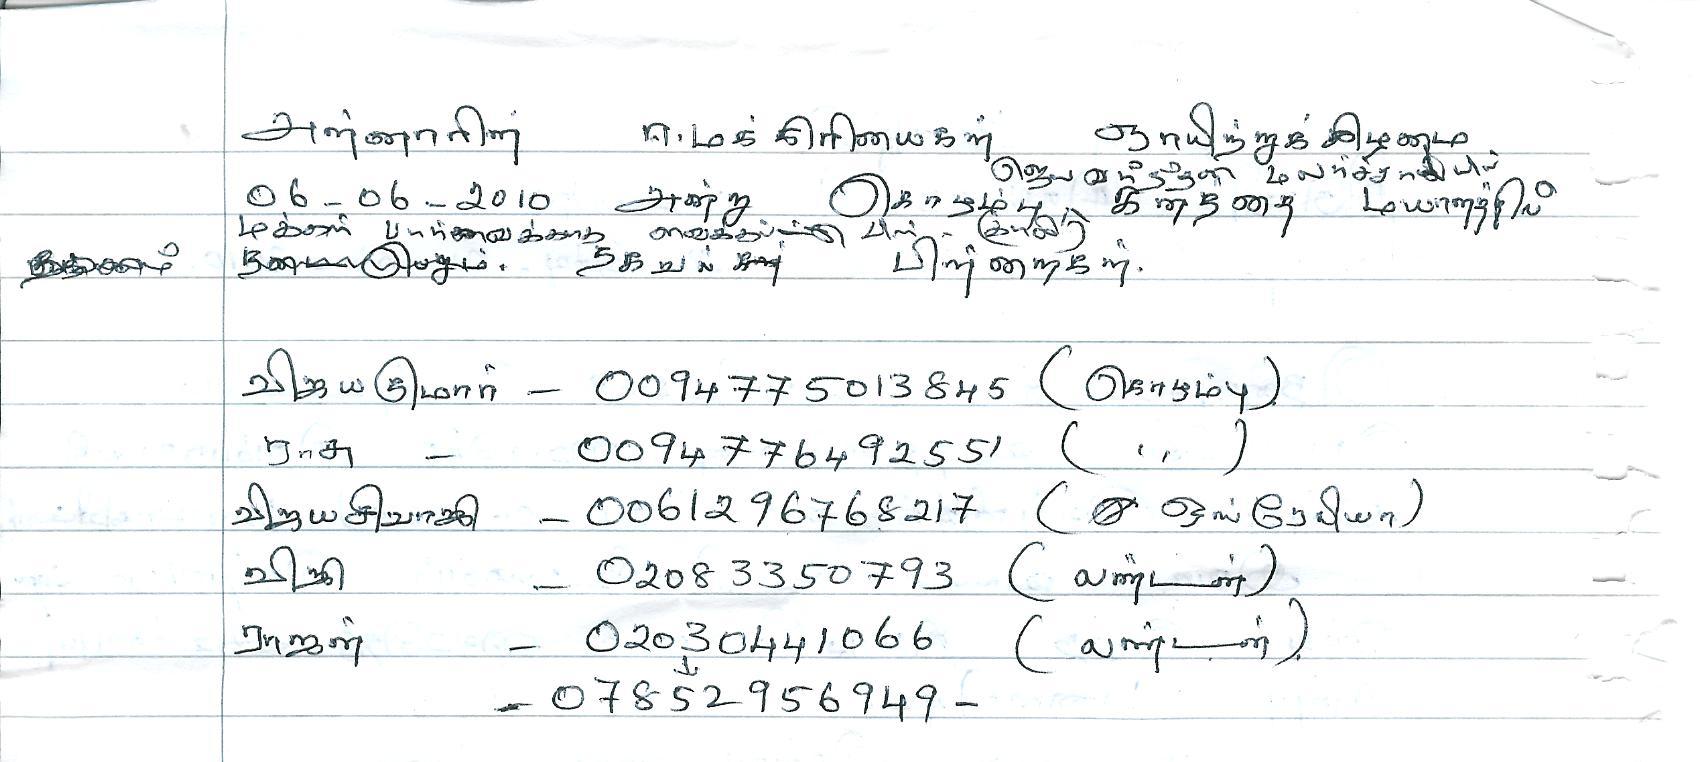 அன்னாரின் ஈ.மக் கிரியைகள் ஞாயிற்றுக் கிழமை
ஜெயவர்த்தன மலர்ச்சாலையில்
06-06-2010 அன்று கொழும்பு கனத்தை மயானத்தில்
மக்கள் பார்வைக்காக வைக்கப்பட்டு பின்
தகவல் பிள்ளைகள்.
விஜயகுமார் - 0094775013845 (கொழும்பு)
ராசு - 0094776492551 ( ,, )
விஜயசிவாஜி - 0061296768217 (அவுஸ்ரேலியா)
விஜி - 02083350793 (லண்டன்)
ராஜன் - 02030441066 (லண்டன்)
- 07852956949 -